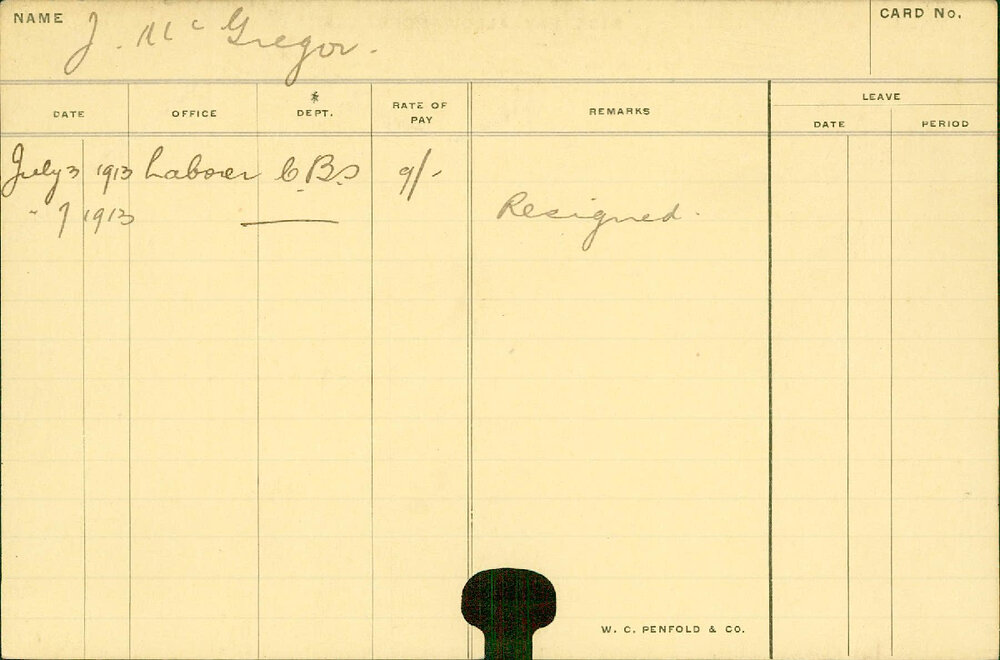 NAME J. McGregor. CARD No.
DATE OFFICE * DEPT. RATE OF PAY REMARKS LEAVE
DATE PERIOD
July 3 1913 Laborer C.B.S 9/-
" 7 1913 Resigned.
W. C. PENFOLD & CO.